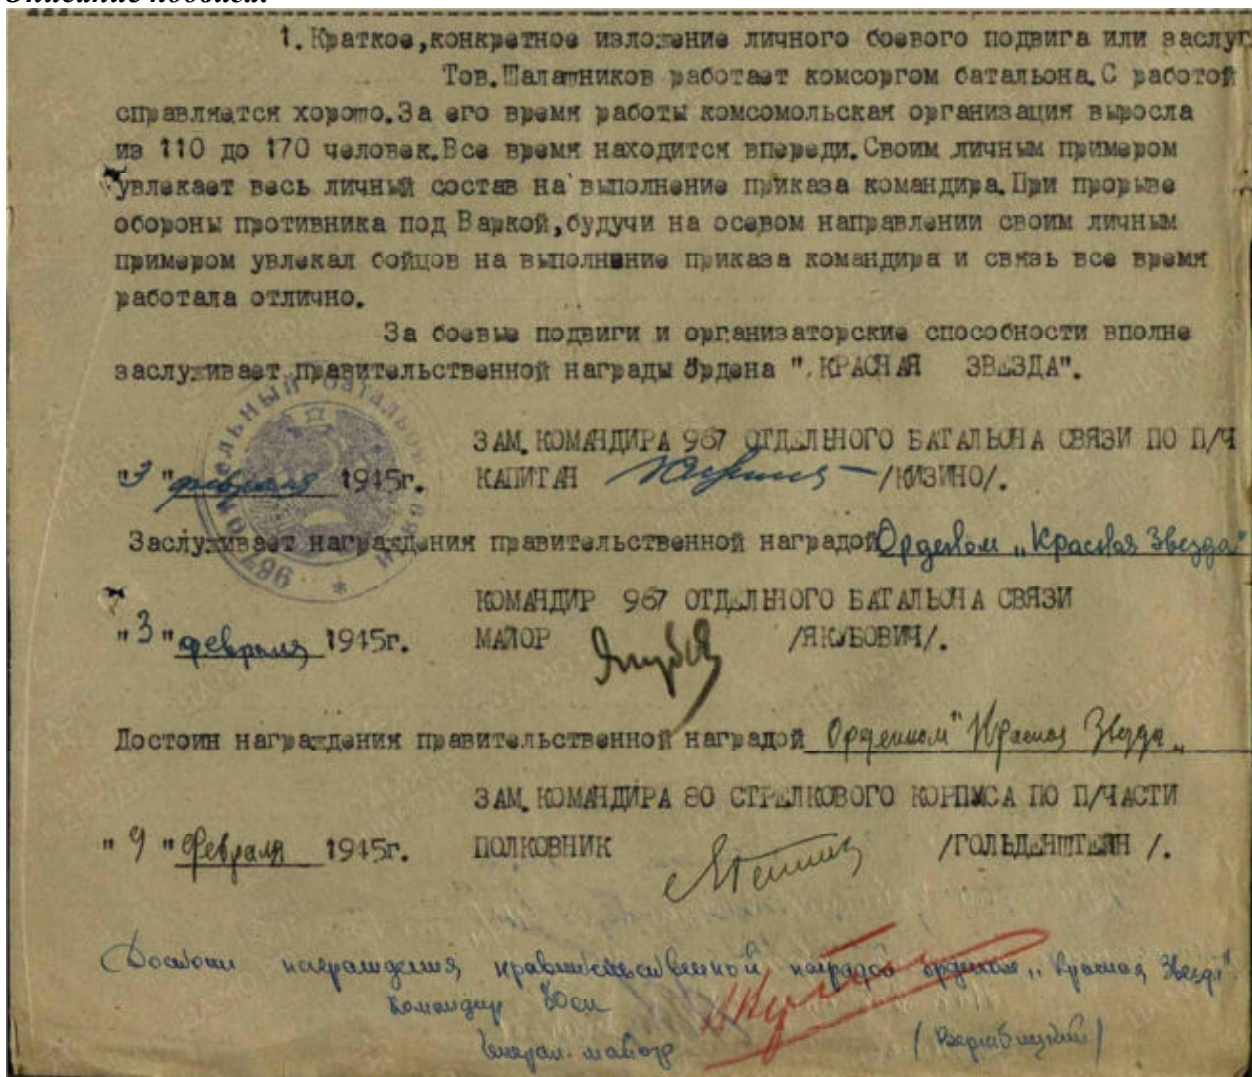 Описание подвига:
1. Краткое,конкретное изложение личного боевого подвига или заслуг
Тов.Шалашников работает комсоргом батальона.С работой
справляется хорошо.За его время работы комсомольская организация выросла
из 110 до 170 человек.Все время находится впереди.Своим личным примером
увлекает весь личный состав на выполнение приказа командира.При прорыве
обороны противника под Варкой,будучи на осевом направлении своим личным
примером увлекал бойцов на выполнение приказа командира и связь все время
работала отлично.
За боевые подвиги и организаторские способности вполне
заслуживает правительственной награды ордена "КРАСНАЯ ЗВЕЗДА".
ЗАМ.КОМАНДИРА 967 ОТДЕЛЬНОГО БАТАЛЬОНА СВЯЗИ ПО П/Ч
"3" февраля 1945г. КАПИТАН /КИЗИНО/.
Заслуживает награждения правительственной наградой Орденом „Красная Звезда"
КОМАНДИР 967 ОТДЕЛЬНОГО БАТАЛЬОНА СВЯЗИ
"3" февраля 1945г. МАЙОР /ЯКУБОВИЧ/.
Достоин награждения правительственной наградой Орденом "Красная Звезда„
ЗАМ.КОМАНДИРА 80 СТРЕЛКОВОГО КОРПУСА ПО П/ЧАСТИ
"9" Февраля 1945г. ПОЛКОВНИК /ГОЛЬДЕНШТЕЙН /.
Достоин награждения правительственной наградой орденом „Красная Звезда"
Командир 80ск
Генерал-майор (Вержбицкий)